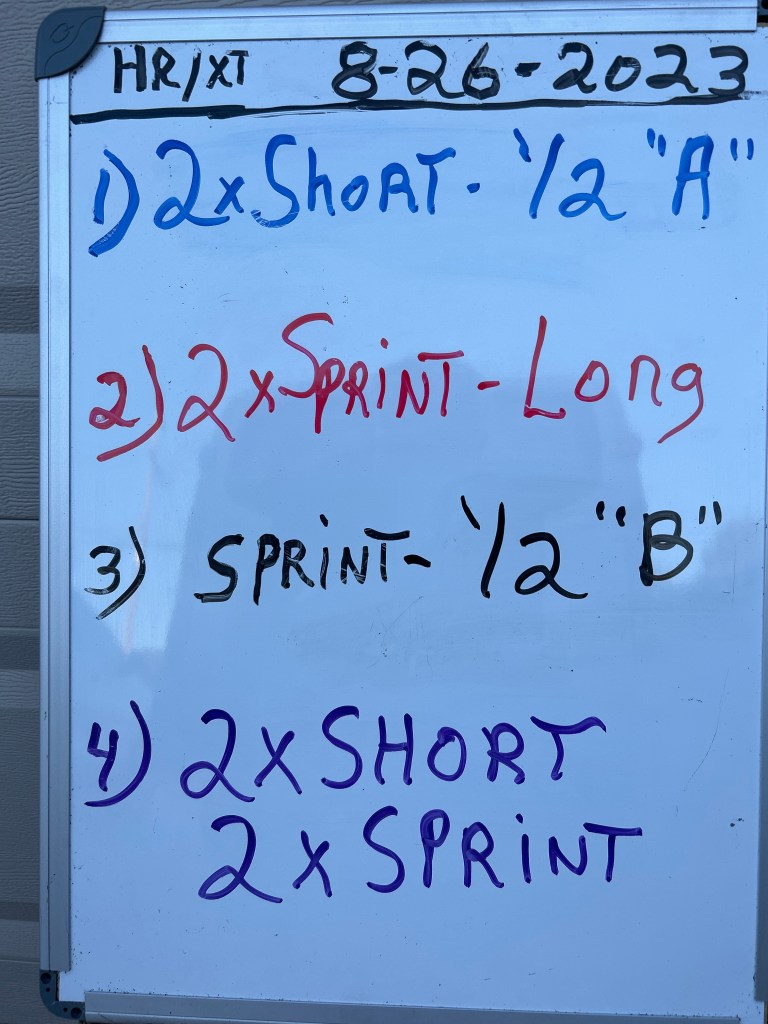 HR/XT 8-26-2023
1) 2xShoRT - 1/2 "A"
2) 2xSPRiNT - Long
3) SPRiNT - 1/2 "B"
4) 2xSHORT
2xSPRiNT